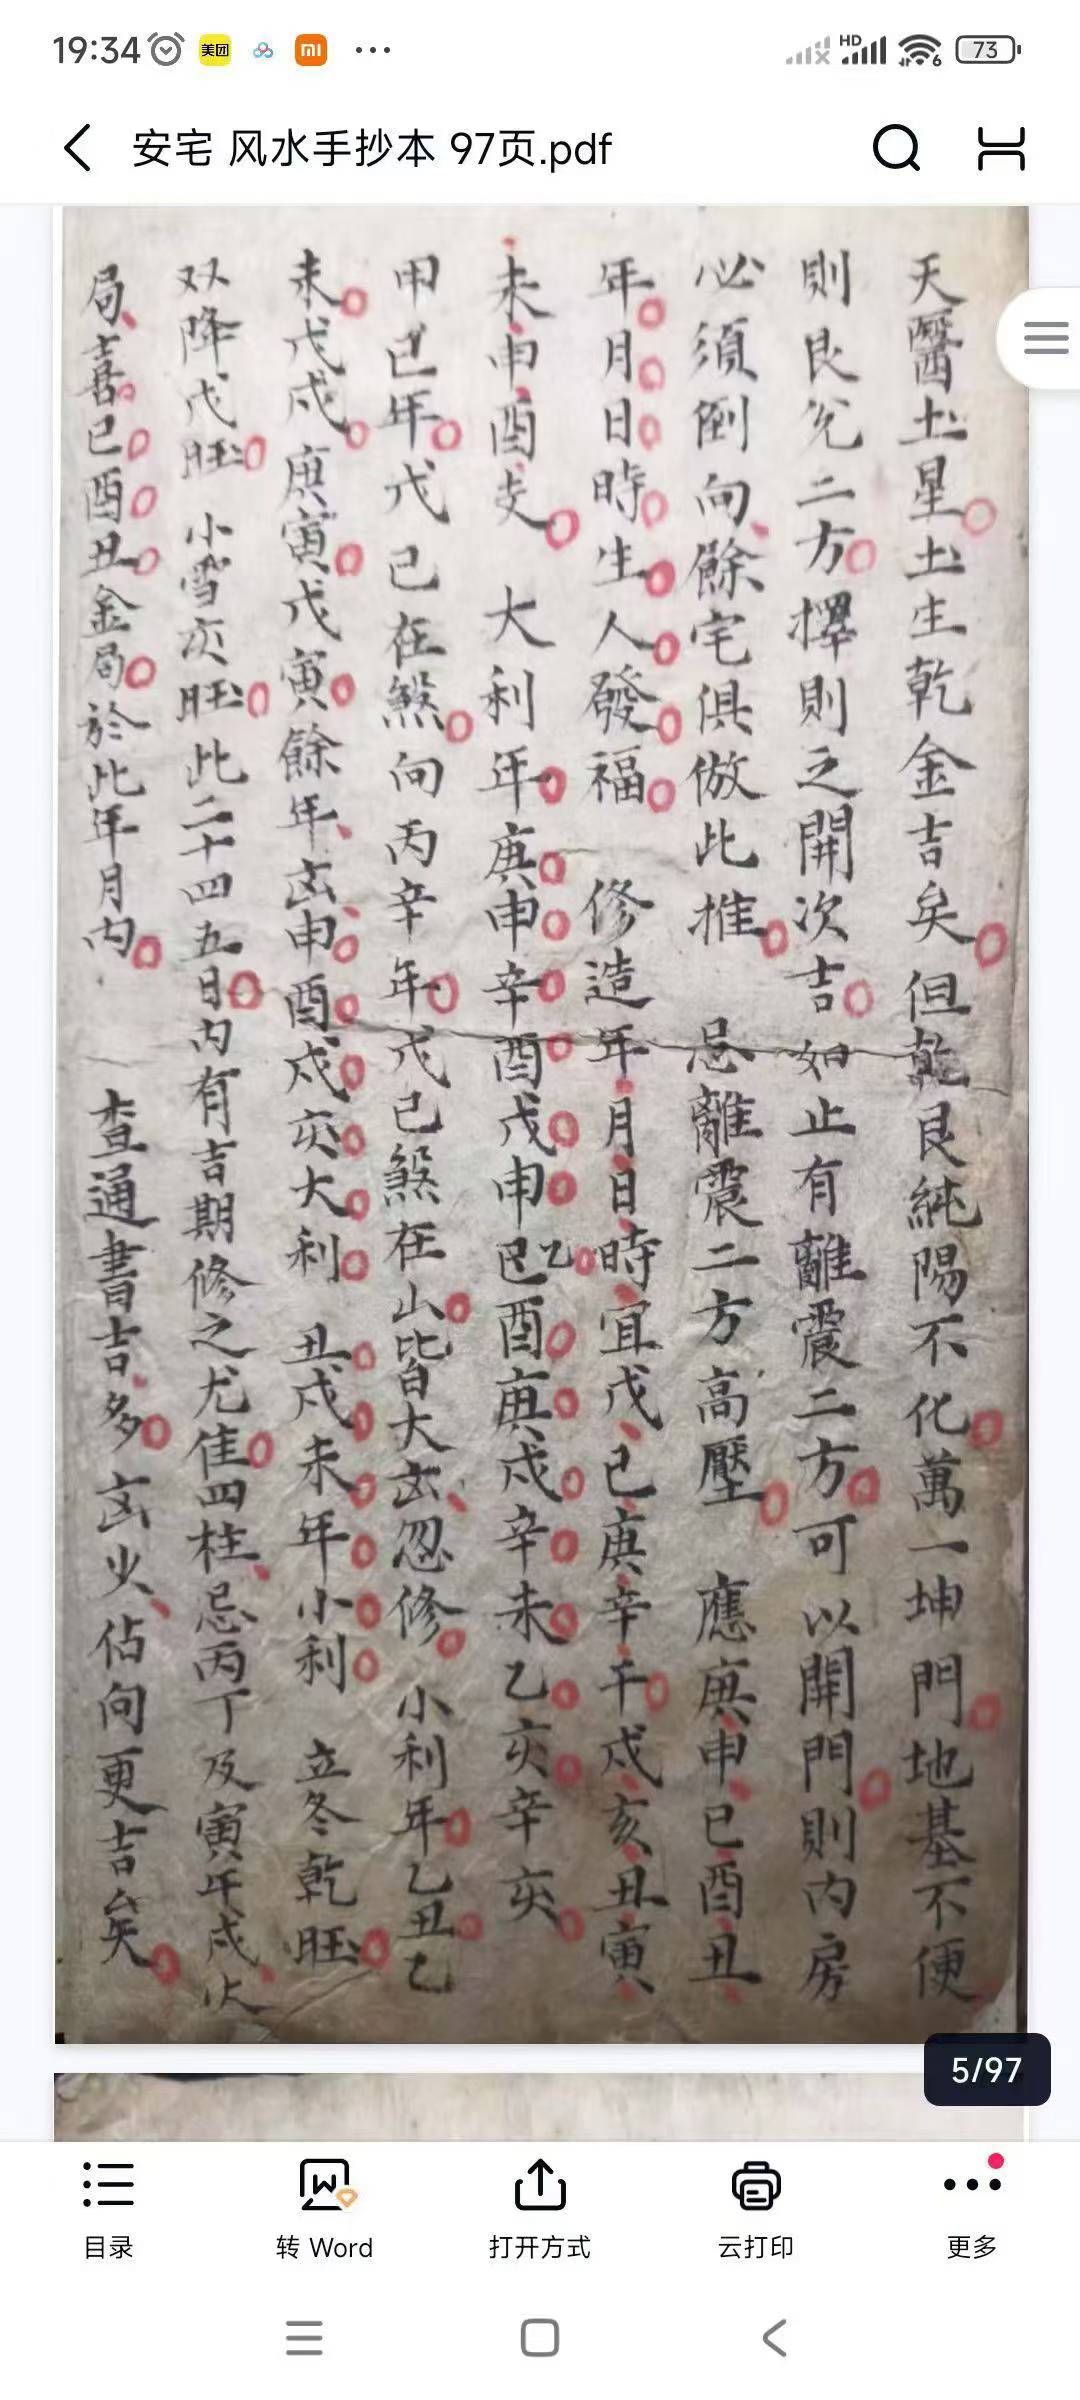 19:34 美团 mi ... HD 6 73
安宅 风水手抄本 97页.pdf
天醫土星土生乾金吉矣但乾艮純陽不化萬一坤門地基不便
則艮兌二方擇則之開次吉如止有離震二方可以開門則內房
必須倒向餘宅俱倣此推 忌離震二方高壓 應庚申巳酉丑
年月日時生人發福 修造年月日時宜戊己庚辛干戌亥丑寅
未申酉支 大利年庚申辛酉戊申己乙酉庚戌辛未乙亥辛亥
甲己年戊己在煞向丙辛年戊己煞在山皆大凶忽修 小利年乙丑乙
未戊戌庚寅戊寅餘年凶申酉戌亥大利 丑戌未年小利 立冬乾旺
双降戊旺 小雪亥旺此二十四五日內有吉期修之尤佳四柱忌丙丁及寅午戌火
局喜巳酉丑金局於此年月內 查通書吉多凶少佔向更吉矣
5/97
目录 转 Word 打开方式 云打印 更多